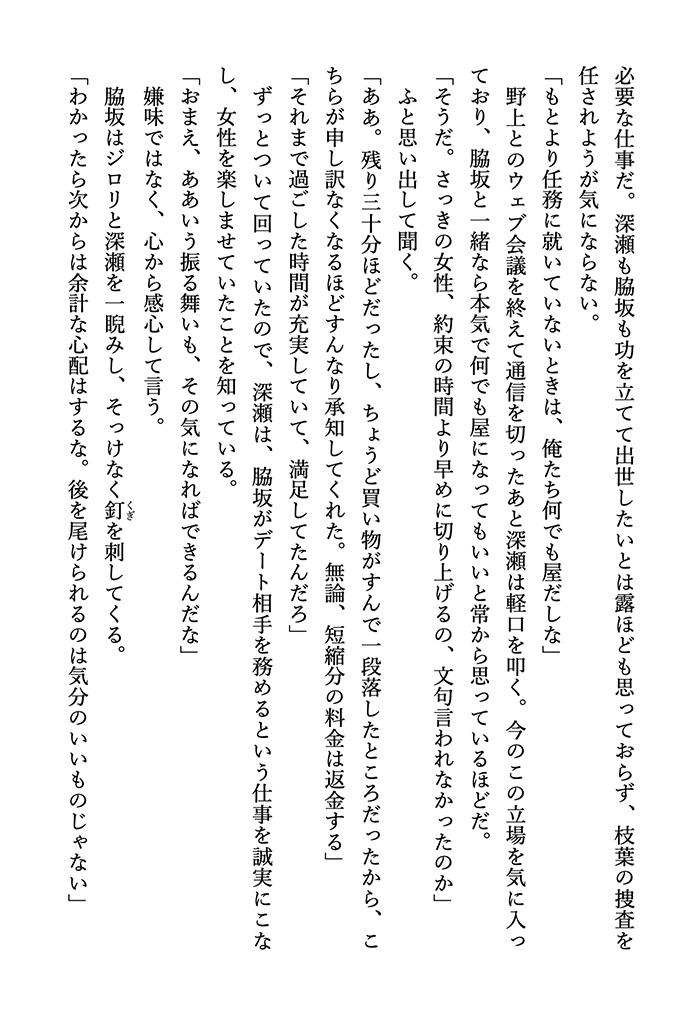 必要な仕事だ。深瀬も脇坂も功を立てて出世したいとは露ほども思っておらず、枝葉の捜査を
任されようが気にならない。
「もとより任務に就いていないときは、俺たち何でも屋だしな」
野上とのウェブ会議を終えて通信を切ったあと深瀬は軽口を叩く。今のこの立場を気に入っ
ており、脇坂と一緒なら本気で何でも屋になってもいいと常から思っているほどだ。
「そうだ。さっきの女性、約束の時間より早めに切り上げるの、文句言われなかったのか」
ふと思い出して聞く。
「ああ。残り三十分ほどだったし、ちょうど買い物がすんで一段落したところだったから、こ
ちらが申し訳なくなるほどすんなり承知してくれた。無論、短縮分の料金は返金する」
「それまで過ごした時間が充実していて、満足してたんだろ」
ずっとついて回っていたので、深瀬は、脇坂がデート相手を務めるという仕事を誠実にこな
し、女性を楽しませていたことを知っている。
「おまえ、ああいう振る舞いも、その気になればできるんだな」
嫌味ではなく、心から感心して言う。
脇坂はジロリと深瀬を一睨みし、そっけなく釘くぎを刺してくる。
「わかったら次からは余計な心配はするな。後を尾けられるのは気分のいいものじゃない」